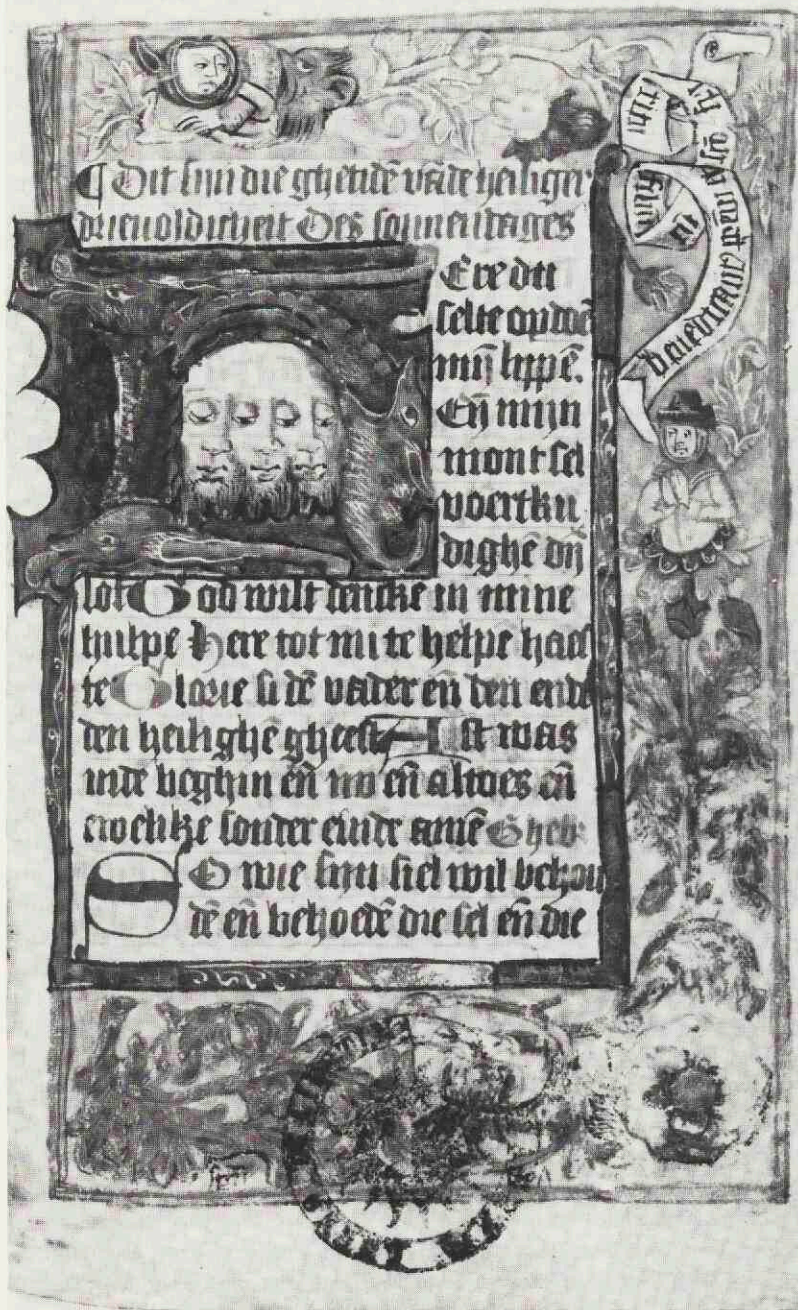 ¶ Dit sijn die ghetidē vādē heiliger
drieuoldicheit Des sonnendages
Ere du
selte opdoē
mijn lippē.
Eñ mijn
mont sel
voertkū
dighē dijn
lof God wilt dencke in mine
hulpe Here tot mi te helpē haes
te Glorie si dē vader eñ den
den heilighē gheest Alst was
inde beghin eñ nv eñ altoes eñ
ewelike sonder einde amē Gheb
So wie sijn siel wil behou
dē eñ behoedē die sel eñ die